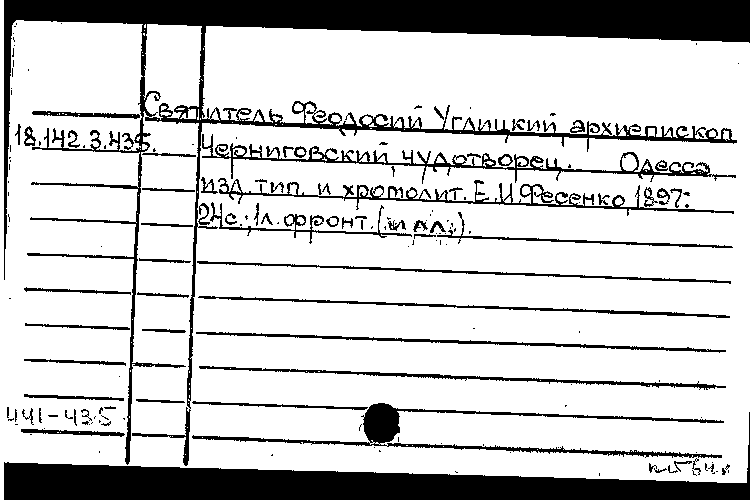 Святитель Феодосий Углицкий, архиепископ
18.142.3.435. Черниговский, чудотворец. Одесса,
изд. тип. и хромолит. Е.И.Фесенко, 1897.
24с.; 1л. фронт. (илл.).
441-435